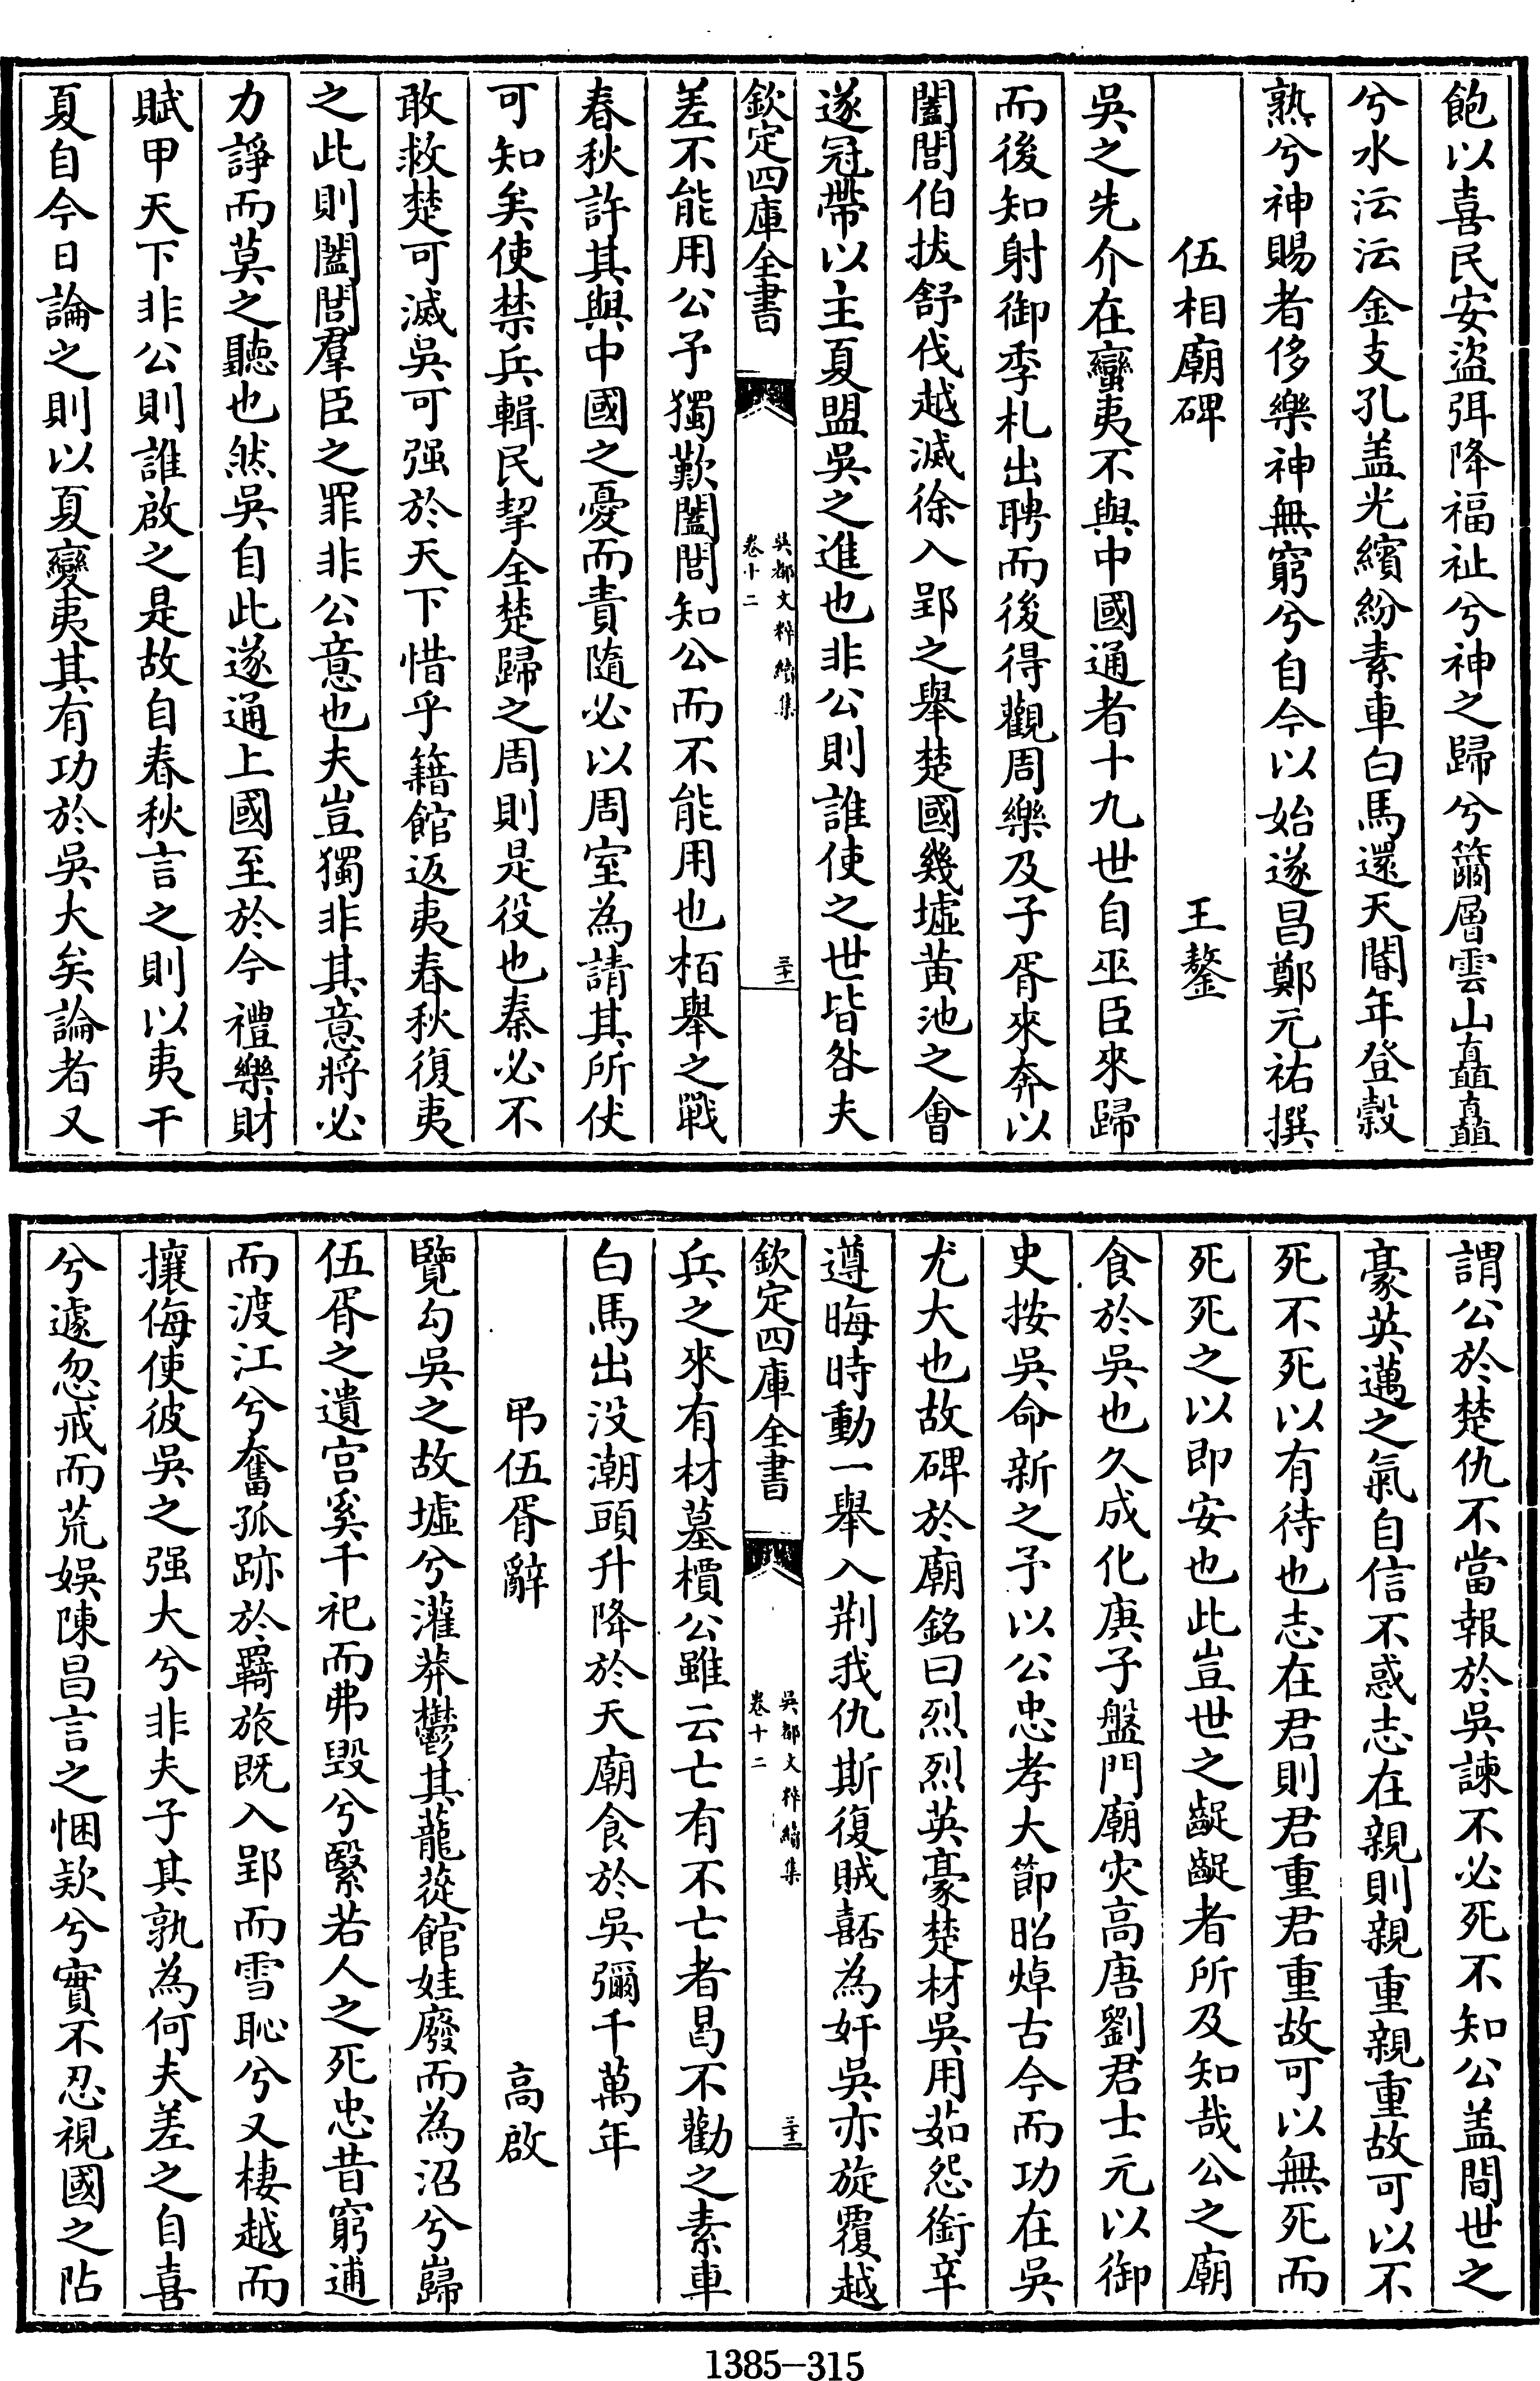 飽以喜民安盜弭降福祉兮神之歸兮簫層雲山矗矗
兮水沄沄金支孔盖光繽紛素車白馬還天閽年登穀
熟兮神賜者侈樂神無窮兮自今以始遂昌鄭元祐撰
伍相廟碑 王鏊
吳之先介在蠻夷不與中國通者十九世自巫臣來歸
而後知射御季札出聘而後得觀周樂及子胥來奔以
闔閭伯拔舒伐越滅徐入郢之舉楚國幾墟黃池之會
遂冠帶以主夏盟吳之進也非公則誰使之世皆咎夫
欽定四庫全書 吳都文粹續集 卷十二 三十一
差不能用公予獨歎闔閭知公而不能用也栢舉之戰
春秋許其與中國之憂而責隨必以周室為請其所伏
可知矣使禁兵輯民挈全楚歸之周則是役也秦必不
敢救楚可滅吳可强於天下惜乎籍館返夷春秋復夷
之此則闔閭羣臣之罪非公意也夫豈獨非其意將必
力諍而莫之聽也然吳自此遂通上國至於今禮樂財
賦甲天下非公則誰啟之是故自春秋言之則以夷干
夏自今日論之則以夏變夷其有功於吳大矣論者又
謂公於楚仇不當報於吳諫不必死不知公盖間世之
豪英邁之氣自信不惑志在親則親重親重故可以不
死不死以有待也志在君則君重君重故可以無死而
死死之以即安也此豈世之齷齪者所及知哉公之廟
食於吳也久成化庚子盤門廟灾高唐劉君士元以御
史按吳命新之予以公忠孝大節昭焯古今而功在吳
尤大也故碑於廟銘曰烈烈英豪楚材吳用茹怨銜辛
遵晦時動一舉入荆我仇斯復賊嚭為奸吳亦旋覆越
欽定四庫全書 吳都文粹續集 卷十二 三十二
兵之來有材墓檟公雖云亡有不亡者曷不勸之素車
白馬出没潮頭升降於天廟食於吳彌千萬年
弔伍胥辭 高啟
覽勾吳之故墟兮灌莽鬱其蘢蓯館娃廢而為沼兮巋
伍胥之遺宫奚千祀而弗毁兮繄若人之死忠昔窮逋
而渡江兮奮孤跡於羇旅既入郢而雪恥兮又棲越而
攘侮使彼吳之强大兮非夫子其孰為何夫差之自喜
兮遽忽戒而荒娛陳昌言之悃欵兮實不忍視國之阽
1385—315